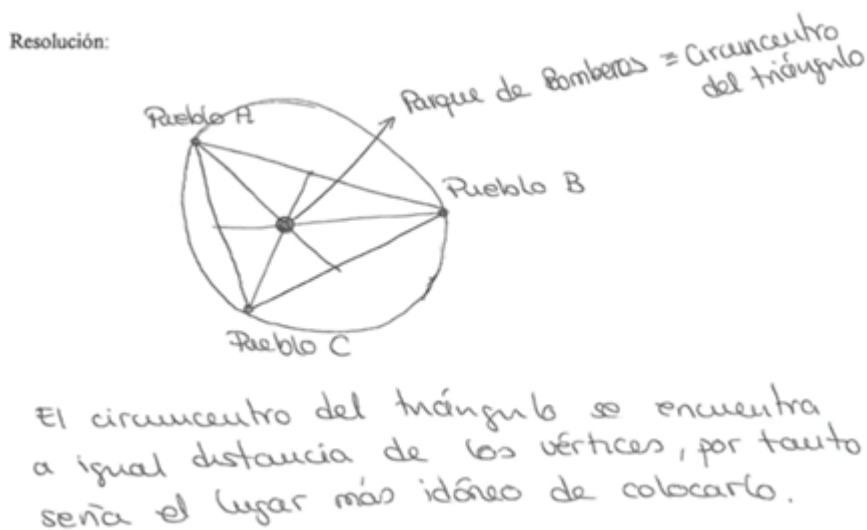 Resolución:
Parque de Bomberos = Circuncentro
del triángulo
Pueblo A
Pueblo B
Pueblo C
El circuncentro del triángulo se encuentra
a igual distancia de los vértices, por tanto
sería el lugar más idóneo de colocarlo.